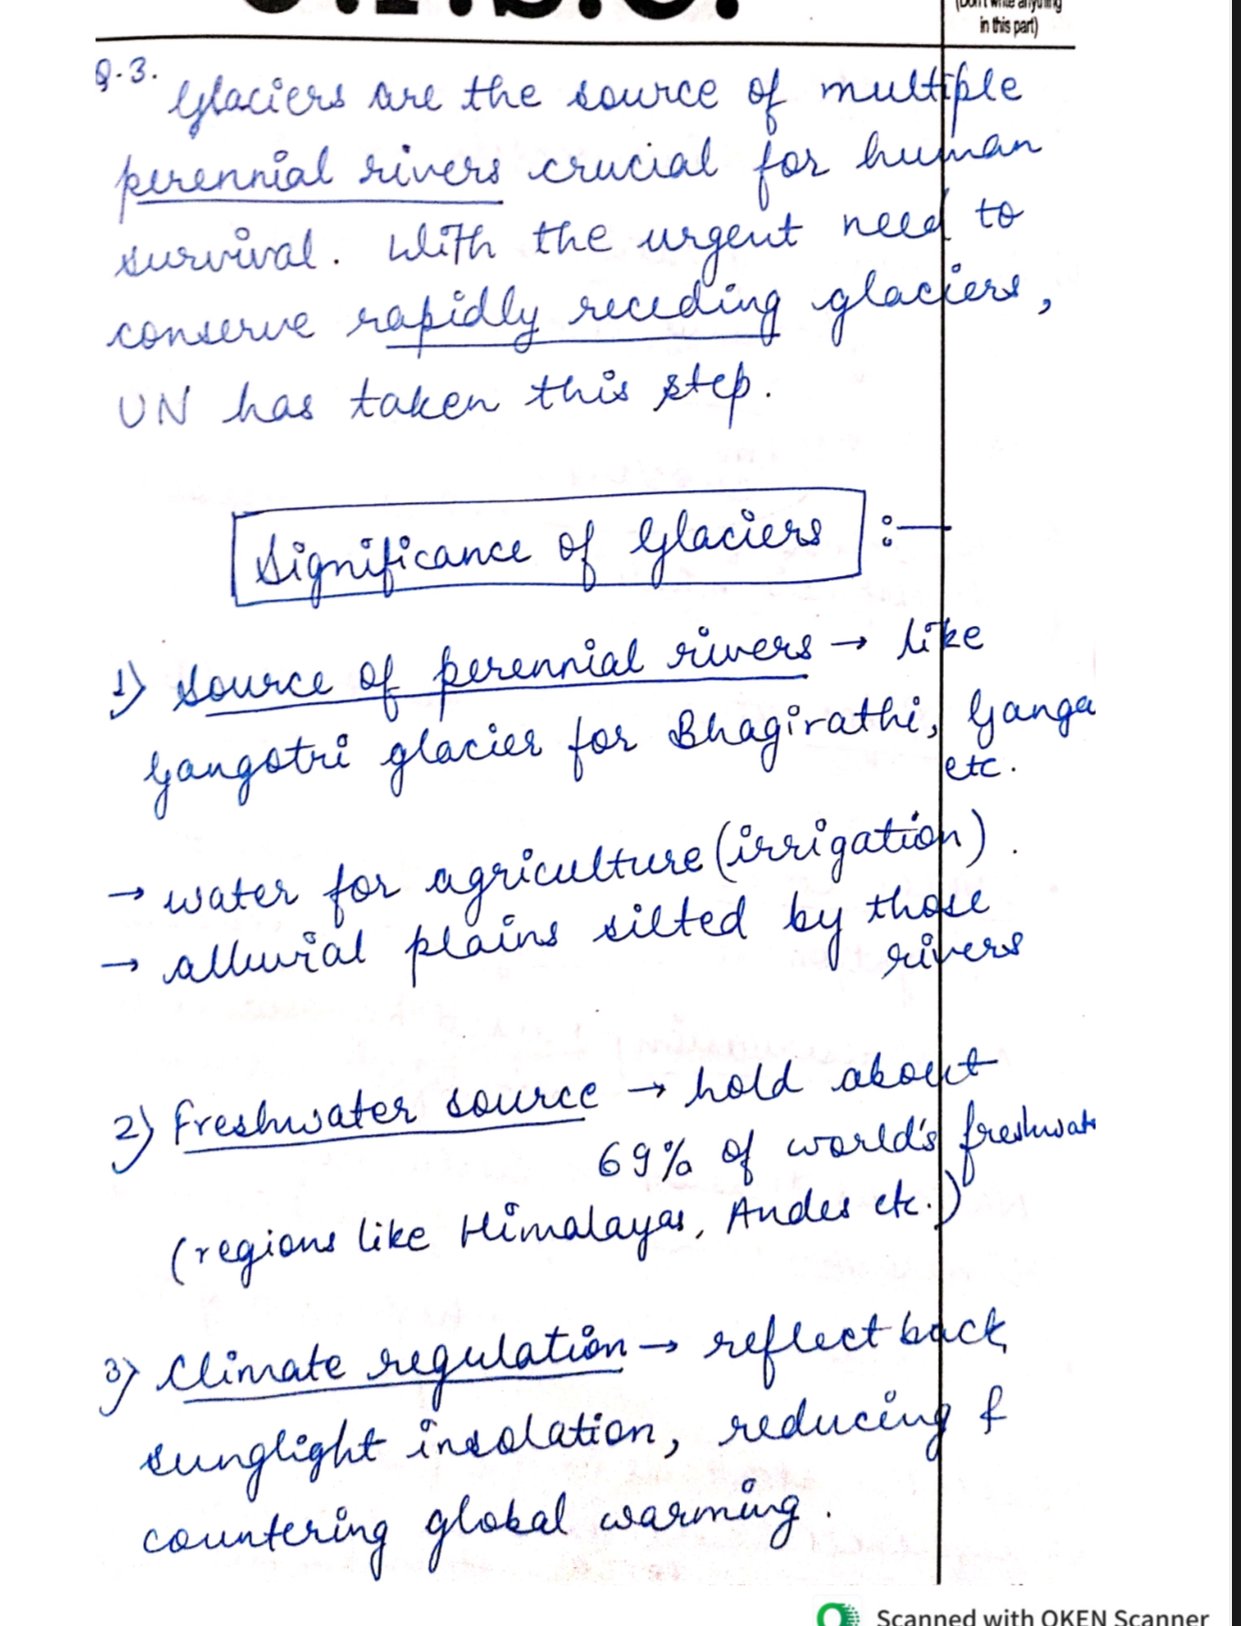 (Don't write anything
in this part)
Q.3.
Glaciers are the source of multiple
perennial rivers crucial for human
survival. With the urgent need to
conserve rapidly receding glaciers,
UN has taken this step.
Significance of Glaciers :—
1) Source of perennial rivers → like
Gangotri glacier for Bhagirathi, Ganga
etc.
→ water for agriculture (irrigation).
→ alluvial plains silted by those
rivers
2) Freshwater source → hold about
69% of world's freshwat
(regions like Himalayas, Andes etc.)
3) Climate regulation → reflect back
sunglight insolation, reducing &
countering global warming.
Scanned with OKEN Scanner